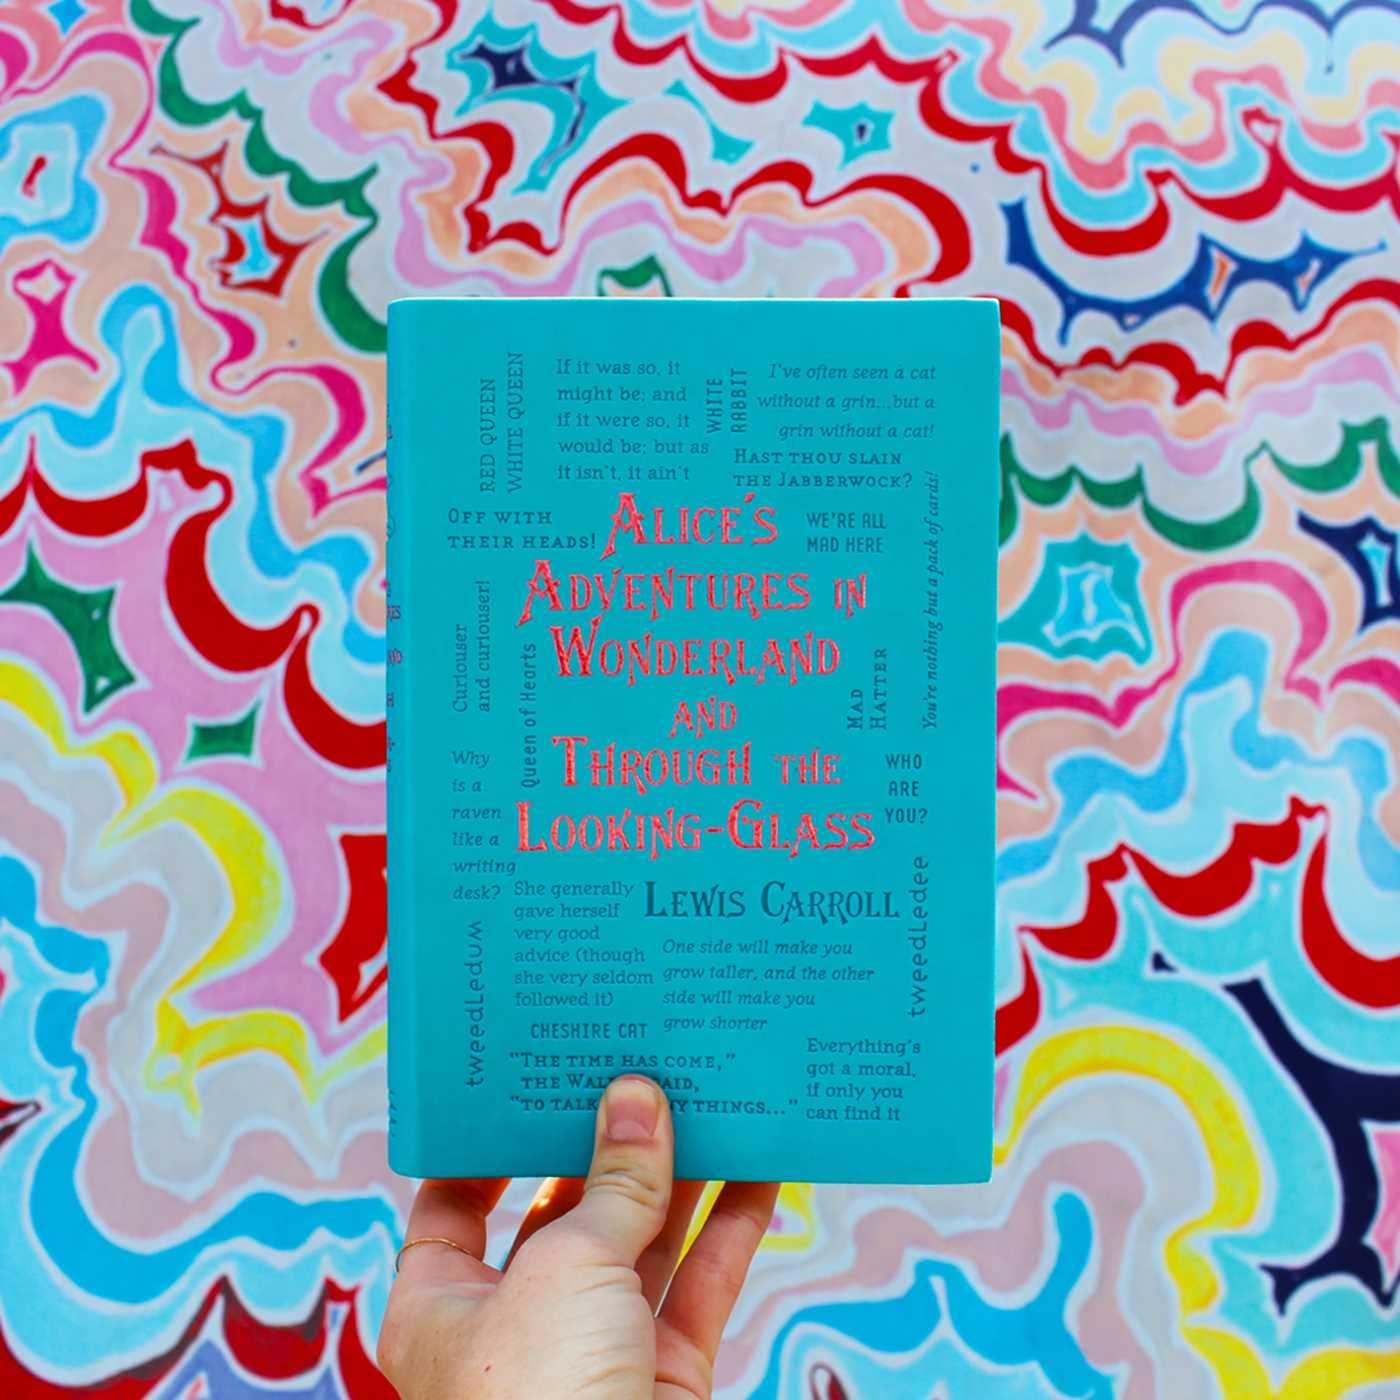 RED QUEEN
WHITE QUEEN
If it was so, it
might be; and
if it were so, it
would be; but as
it isn't, it ain't
WHITE
RABBIT
I've often seen a cat
without a grin...but a
grin without a cat!
HAST THOU SLAIN
THE JABBERWOCK?
OFF WITH
THEIR HEADS!
ALICE'S
ADVENTURES IN
WONDERLAND
AND
THROUGH THE
LOOKING-GLASS
WE'RE ALL
MAD HERE
You're nothing but a pack of cards!
Curiouser
and curiouser!
Queen of Hearts
MAD
HATTER
Why
is a
raven
like a
writing
desk?
WHO
ARE
YOU?
LEWIS CARROLL
She generally
gave herself
very good
advice (though
she very seldom
followed it)
One side will make you
grow taller, and the other
side will make you
grow shorter
tweedLedum
tweedLedee
CHESHIRE CAT
"THE TIME HAS COME,"
THE AID,
"TO TALK THINGS..."
Everything's
got a moral,
if only you
can find it